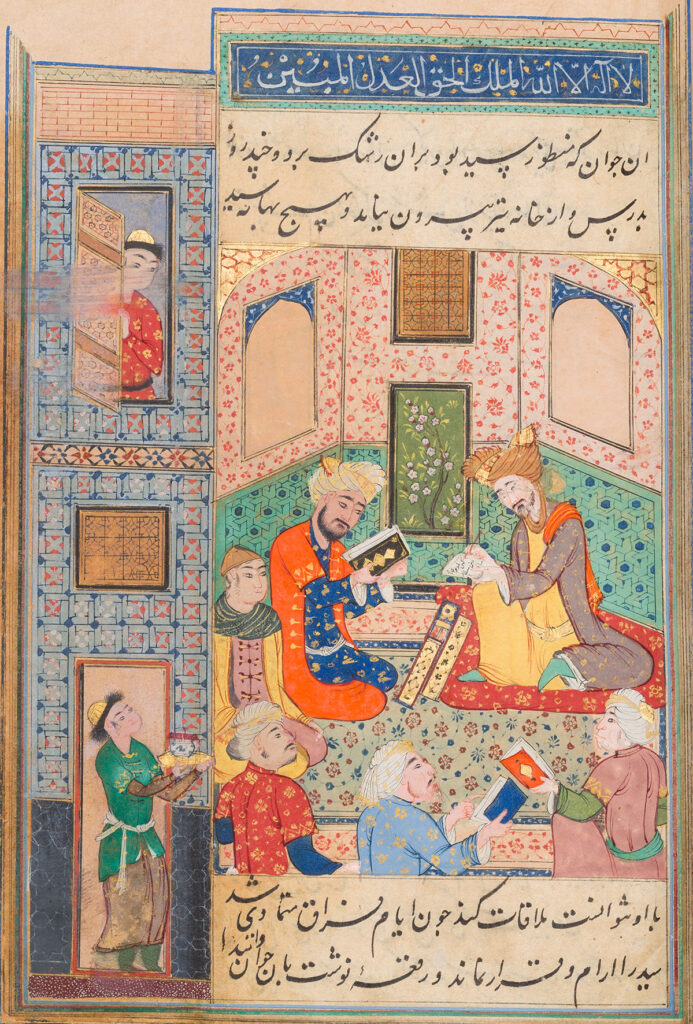 لا اله الا الله الملك الحق العدل المبين
ان جوان که منظور سید بود بران رشک برد و چند روز
بدرس و از خانه نیز بیرون نیاید و بهیچ بهانه سید
با او نتوانست ملاقات کند چون ایام فراق متمادی شد
سید را ارام و قرار نماند و رقعهٔ نوشت بان جوان